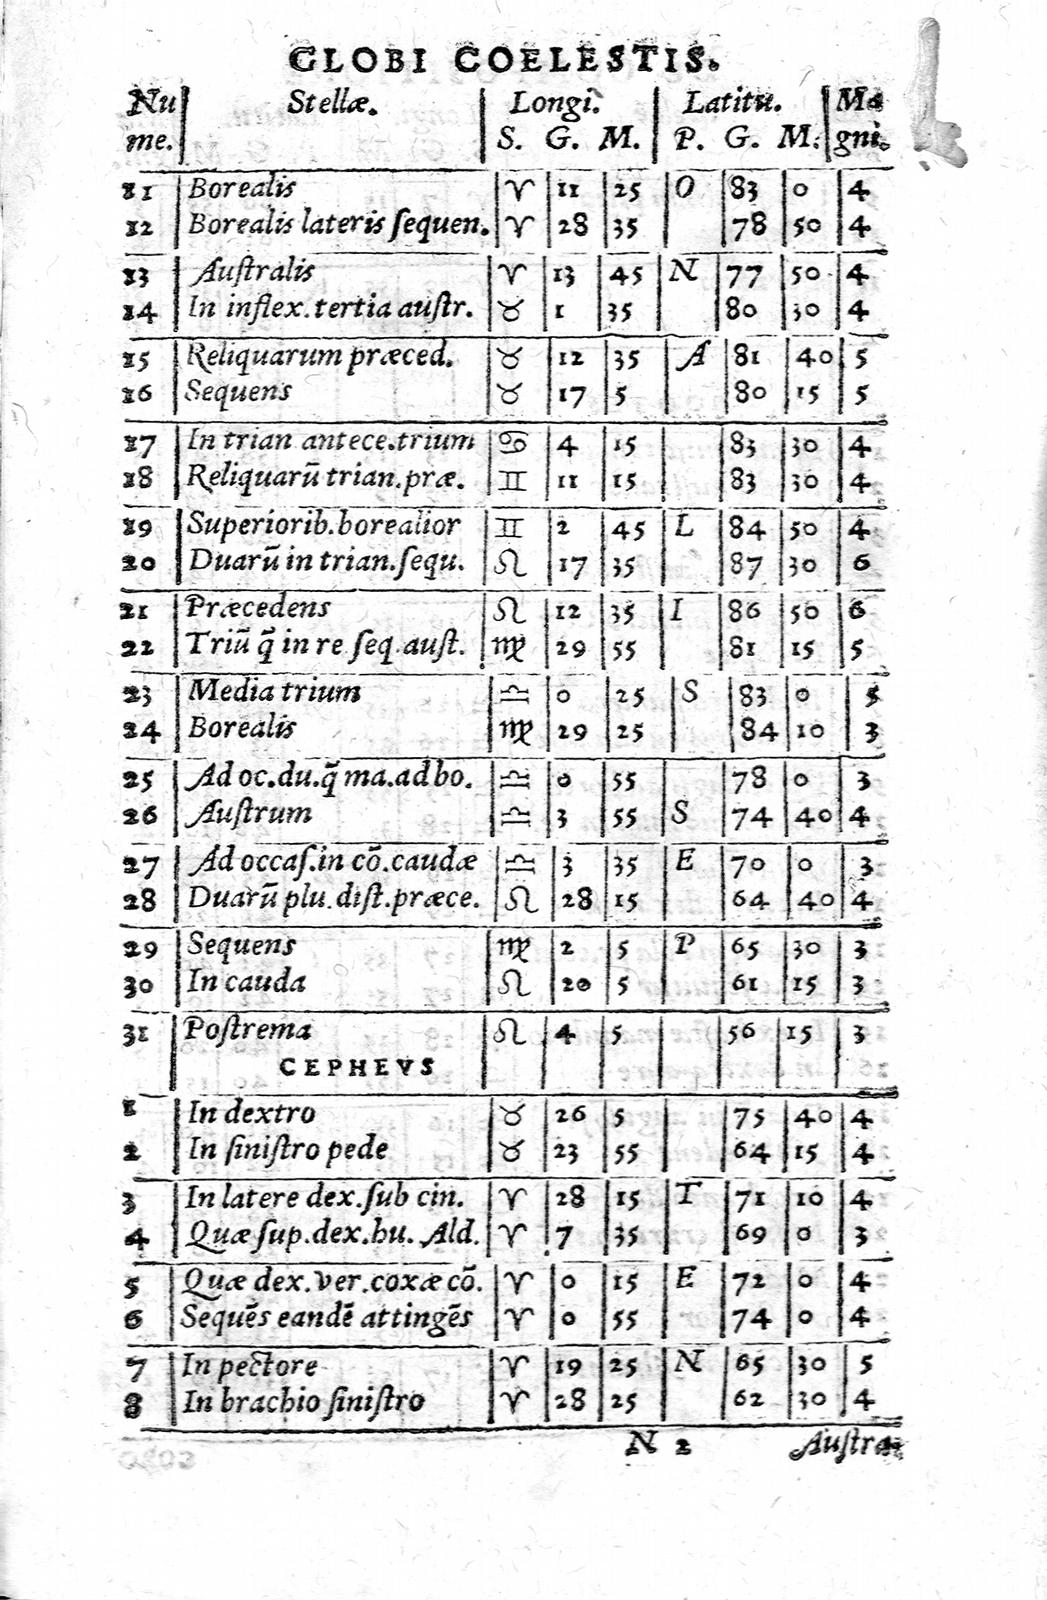 GLOBI COELESTIS.
Nu Stellæ. Longi. Latitu. Ma
me. S. G. M. P. G. M. gni.
11 Borealis ♈ 11 25 O 83 0 4
12 Borealis lateris ſequen. ♈ 28 35 78 50 4
13 Auſtralis ♈ 13 45 N 77 50 4
14 In inflex. tertia auſtr. ♉ 1 35 80 30 4
15 Reliquarum præced. ♉ 12 35 A 81 40 5
16 Sequens ♉ 17 5 80 15 5
17 In trian antece. trium ♋ 4 15 83 30 4
18 Reliquarū trian. præ. ♊ 11 15 83 30 4
19 Superiorib. borealior ♊ 2 45 L 84 50 4
20 Duarū in trian. ſequ. ♌ 17 35 87 30 6
21 Præcedens ♌ 12 35 I 86 50 6
22 Triū q̄ in re ſeq auſt. ♍ 29 55 81 15 5
23 Media trium ♎ 0 25 S 83 0 5
24 Borealis ♍ 29 25 84 10 3
25 Ad oc. du. q̄ ma. ad bo. ♎ 0 55 78 0 3
26 Auſtrum ♎ 3 55 S 74 40 4
27 Ad occaſ. in cō. caudæ ♎ 3 35 E 70 0 3
28 Duarū plu. diſt. præce. ♌ 28 15 64 40 4
29 Sequens ♍ 2 5 P 65 30 3
30 In cauda ♌ 20 5 61 15 3
31 Poſtrema ♌ 4 5 56 15 3
CEPHEVS
1 In dextro ♉ 26 5 75 40 4
2 In ſiniſtro pede ♉ 23 55 64 15 4
3 In latere dex. ſub cin. ♈ 28 15 T 71 10 4
4 Quæ ſup. dex. hu. Ald. ♈ 7 35 69 0 3
5 Quæ dex. ver. coxæ cō. ♈ 0 15 E 72 0 4
6 Sequēs eandē attingēs ♈ 0 55 74 0 4
7 In pectore ♈ 19 25 N 65 30 5
8 In brachio ſiniſtro ♈ 28 25 62 30 4
N 2 Auſtra-